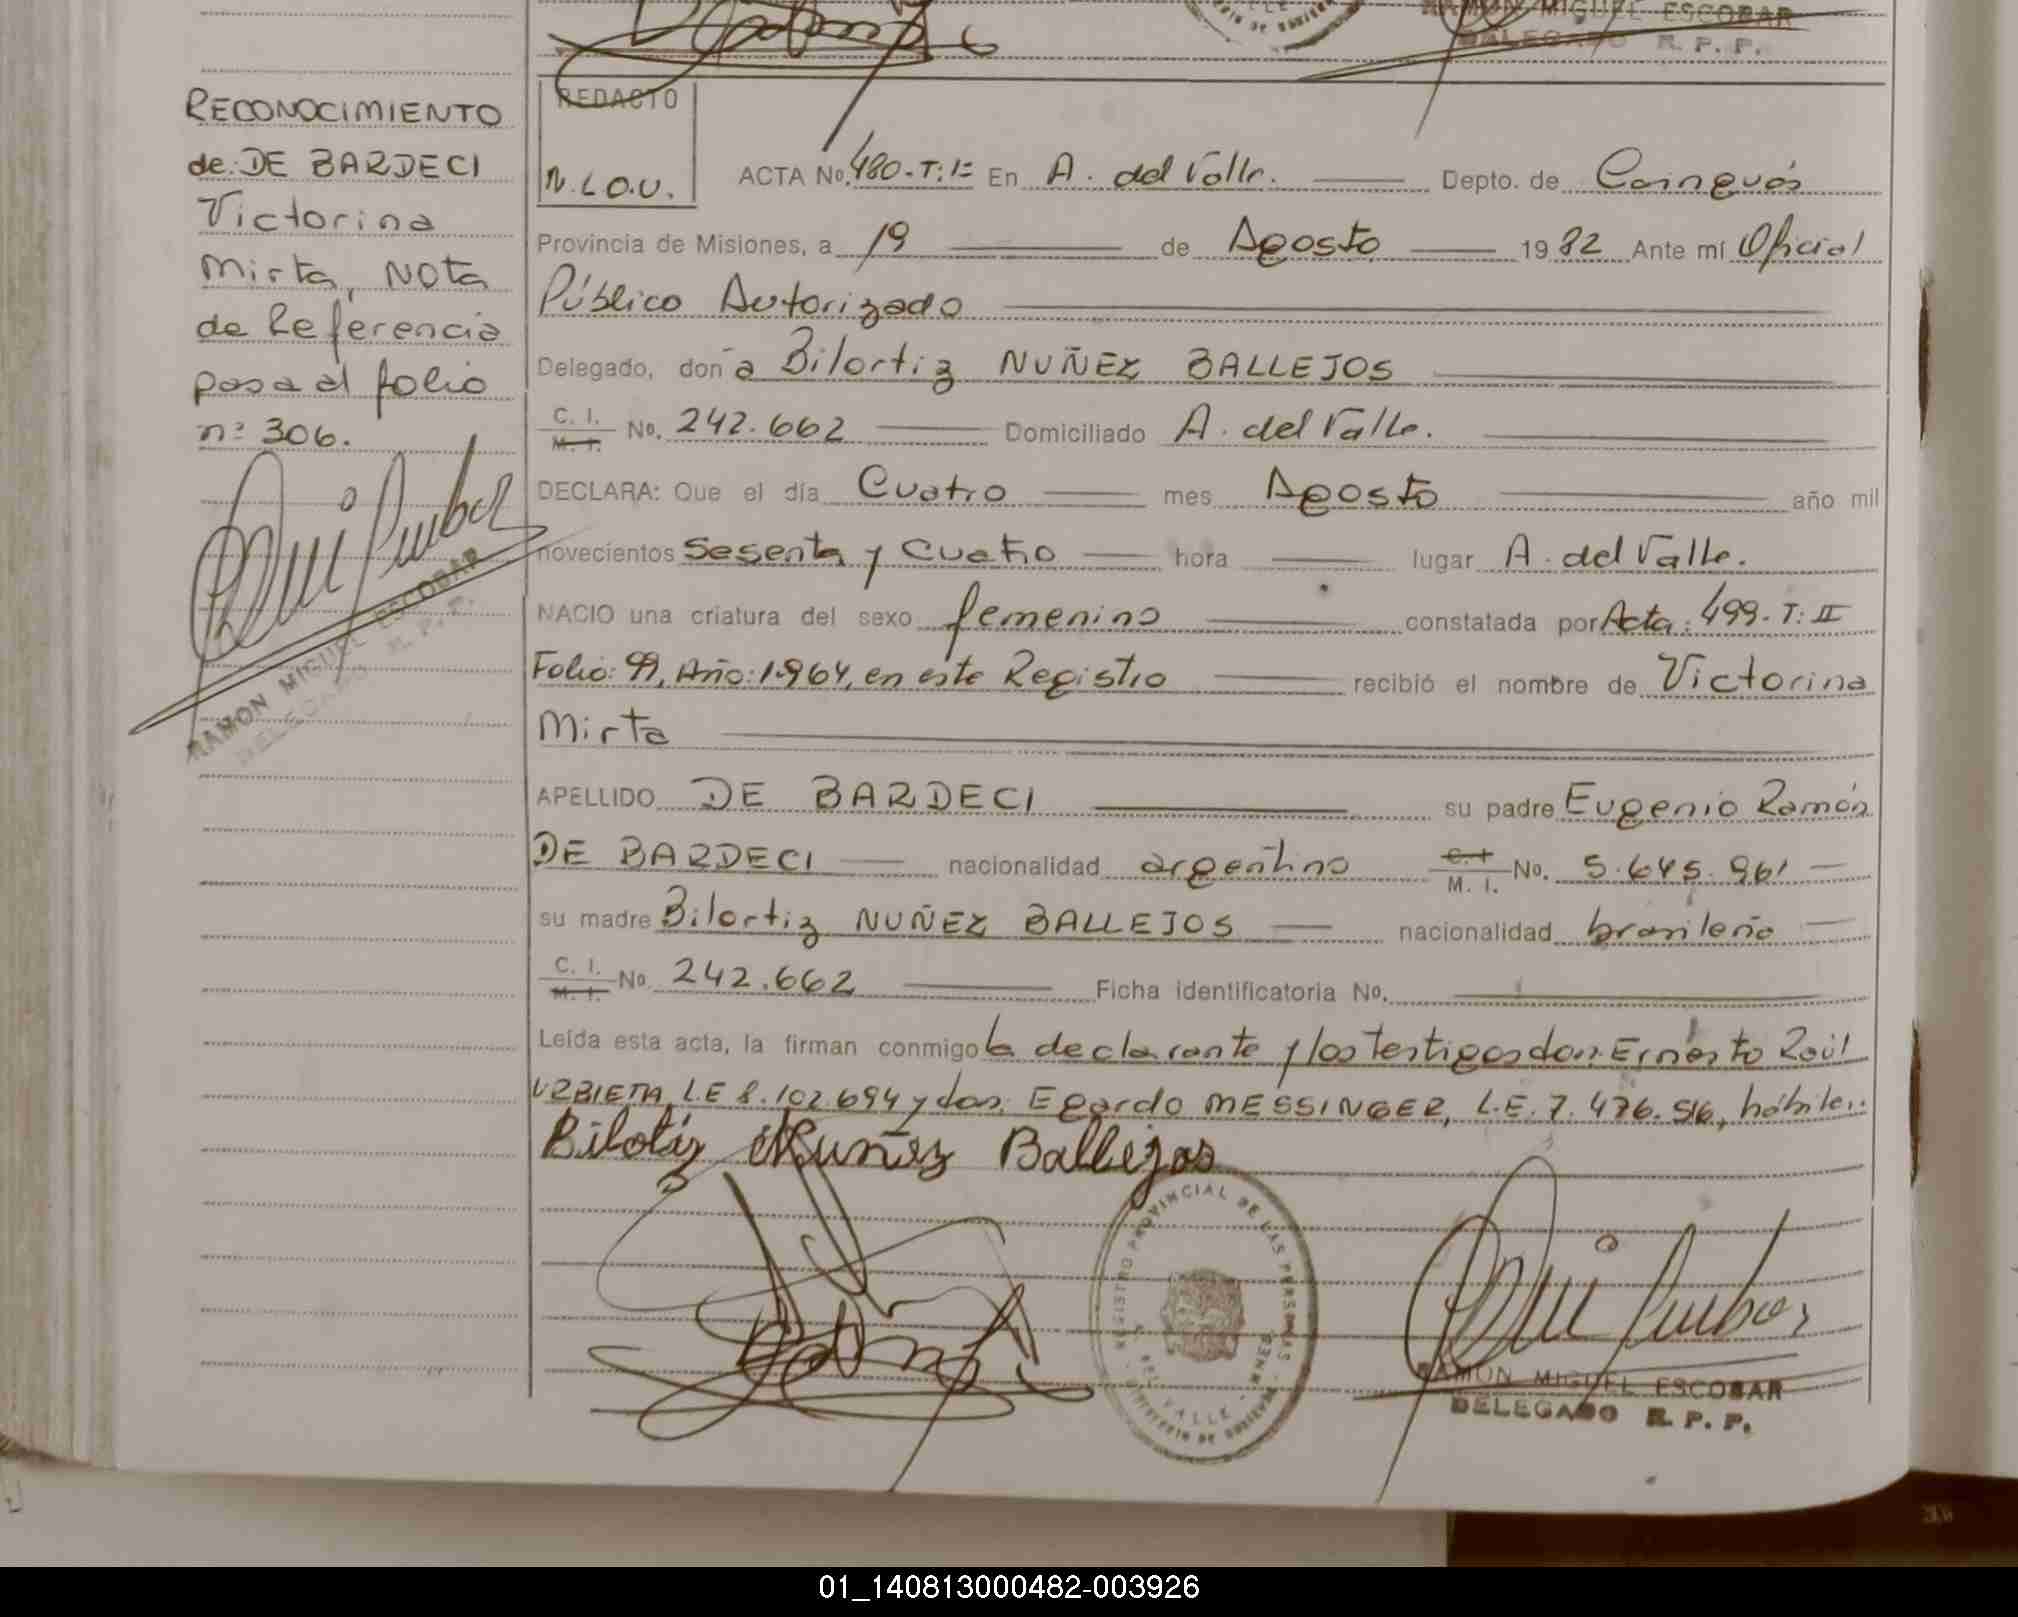 RAMON MIGUEL ESCOBAR
DELEGADO R. P. P.
RECONOCIMIENTO
de: DE BARDECI
Victorina
Mirta, NOTA
de Referencia
pasa al folio
nº 306.
RAMON MIGUEL ESCOBAR
DELEGADO R. P. P.
REDACTO
N.L.O.U.
ACTA No. 480-T:1º En A. del Valle. Depto. de Cainguás
Provincia de Misiones, a 19 de Agosto 1982 Ante mí Oficial
Público Autorizado
Delegado, doña Bilortiz NUÑEZ BALLEJOS
C. I. M. I. No. 242.662 Domiciliado A. del Valle.
DECLARA: Que el día Cuatro mes Agosto año mil
novecientos Sesenta y Cuatro hora lugar A. del Valle.
NACIO una criatura del sexo femenino constatada por Acta: 499-T: II
Folio: 99, Año: 1.964, en este Registro recibió el nombre de Victorina
Mirta
APELLIDO DE BARDECI su padre Eugenio Ramón
DE BARDECI nacionalidad argentino C. I M. I. No. 5.645.961
su madre Bilortiz NUÑEZ BALLEJOS nacionalidad brasileña
C. I. M. I. No. 242.662 Ficha identificatoria No.
Leída esta acta, la firman conmigo la declarante y los testigos don: Ernesto Raúl
URBIETA, L.E 8.102.694 y don: Egardo MESSINGER, L.E. 7.476.516, hábiles.
Bilotiz Nuñez Ballejos
REGISTRO PROVINCIAL DE LAS PERSONAS
DEL VALLE - MNES.
RAMON MIGUEL ESCOBAR
DELEGADO R. P. P.
01_140813000482-003926